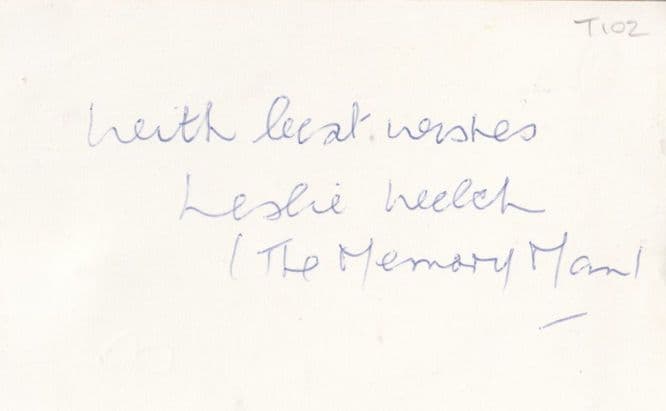 T102
With best wishes
Leslie Welch
(The Memory Man)